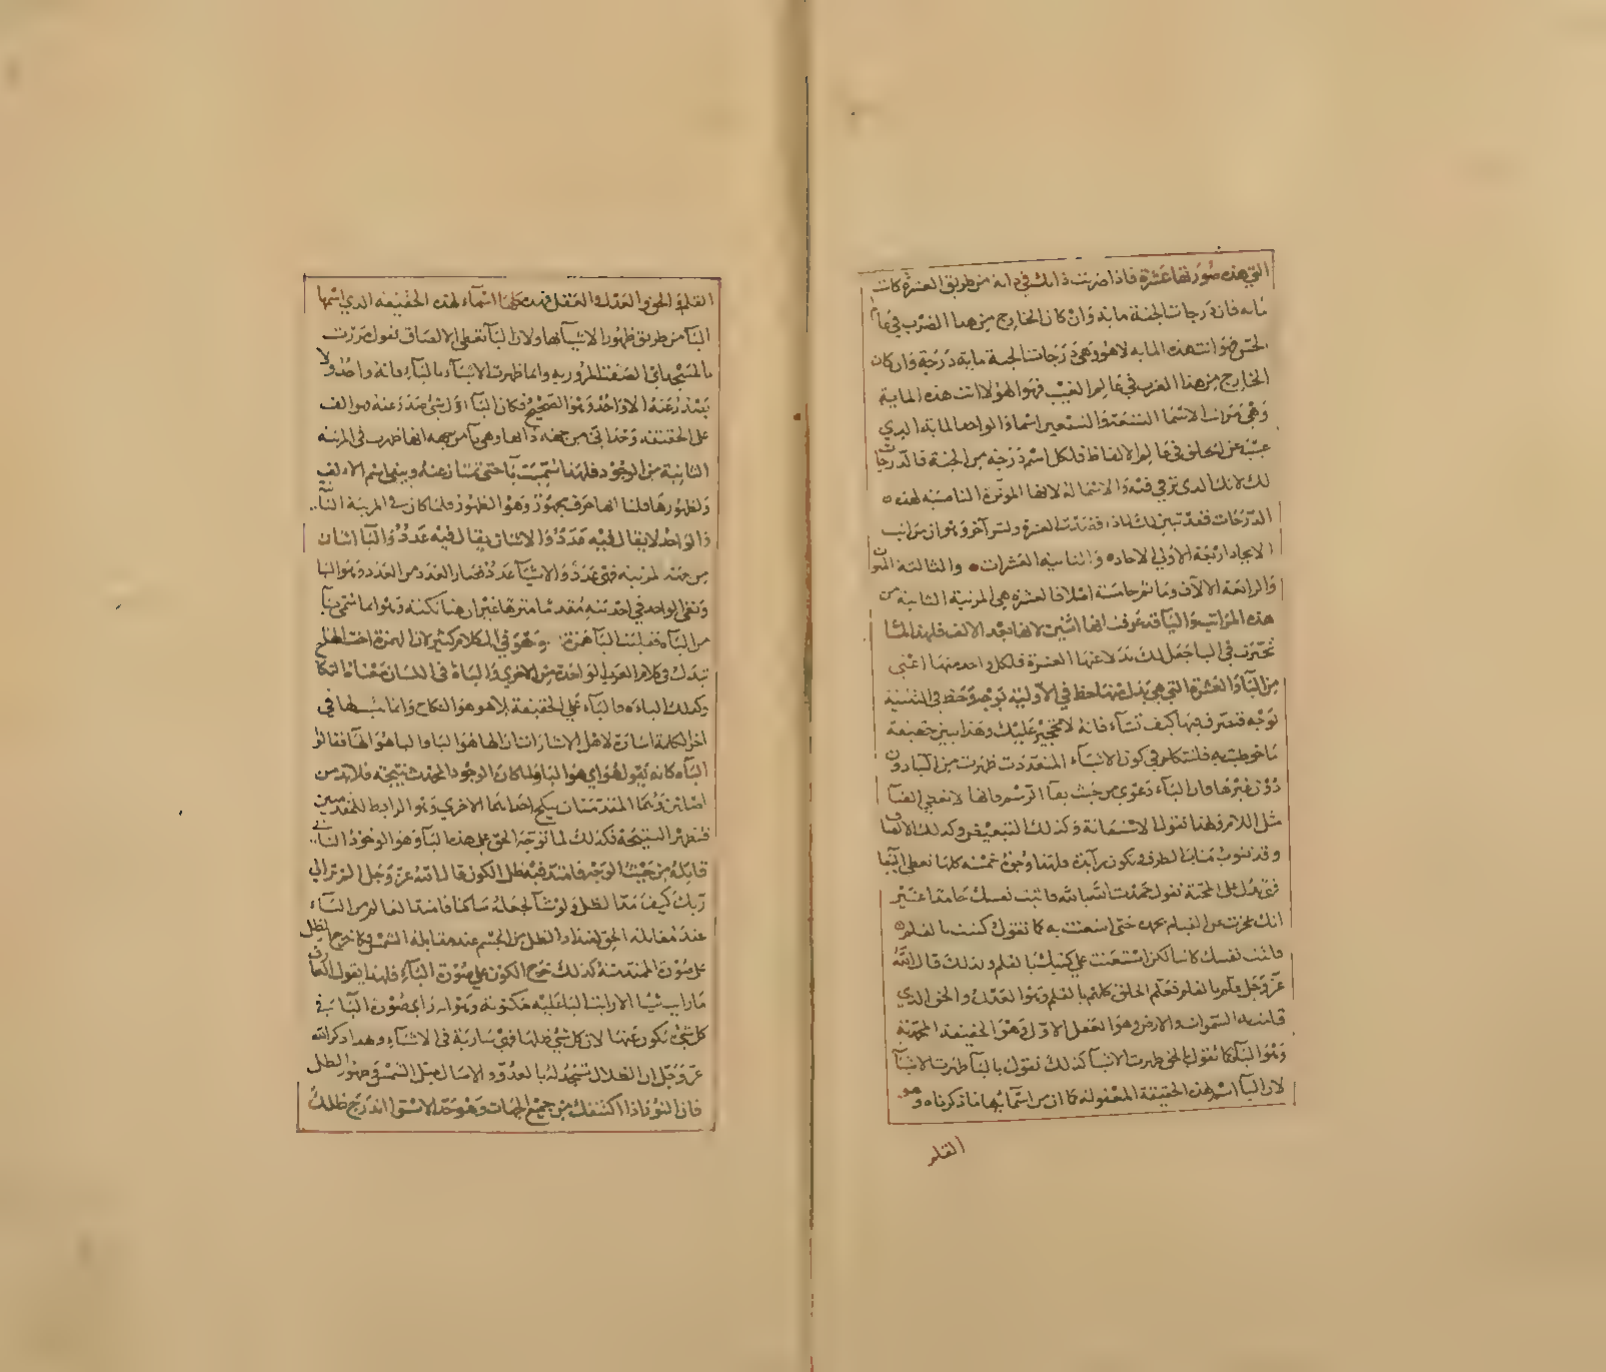 التي هذه صورتها عشرة فاذا ضربت ذاتك في ذاته من طريق العشرة كانت
مائه فان درجات الجنة مائة وان كان الخارج من هذا الضرب في عالم
الحس فهو انت هذه المايه لا هو وهي درجات الجنة ماية درجة وان كان
الخارج من هذا الضرب في عالم الغيب فهو الهو لا انت هذه الماية
وهي مراتب الاسما التسعة والتسعين اسما والواحد الماية الذي
غيبه عن التعلق في عالم الالفاظ فلكل اسم درجة من الجنة فالدرجات
لك لانك الذي ترقي فيه والاسما له لانها الموثرة المناسبة لهذه
الدرجات فقد تبين لك لماذا فقدت العشرة ولسر آخر وهو ان مراتب
الايجاد اربعة الاولي الاحاد والثانية العشرات والثالثة المئون
والرابعة الالاف وما ثم خامسة اصلا فالعشرة هي المرتبة الثانية من
هذه المراتب والبا قد عرفت انها اثنين لانها بعد الالف فلهذا لما
تحترف في البا جعل لك بدلا عنها العشرة فلكل واحد منهما اعني
من الباء والعشرة التي هي بدل منها حظ في الاولية بوجه وحظ في التثنية
بوجه فتصرف فيها كيف تشاء فانه لا تحجير عليك وهذا سر حقيقة
ما خوطبت به فلنتكلم في كون الاشياء المتعددت ظهرت من الباء دون
دون غيرها فان الباء دعوي من حيث بقاء الرسم فانها لا تعطي الفناء
مثل اللام ولهذا نقول لها للاستعانة وكذلك التبعيض وكذلك الالصاق
وقد تنوب مناب الظرف وتكون زايدة فلهذا وجوه خمسة كلها تعطي البقا
فهي تدل علي المحبة نقول حمدت الله بالله فاثبت نفسك حامدا غير
انك عجزت عن القيام بحمده حتي استعنت به كما تقول كتبت بالقلم
فاثبت نفسك كاتبا لكن استعنت علي كتبك بالقلم ولذلك قال الله
عز وجل علم بالقلم فعلم الخلق كلهم بالقلم وهو العدل والحق الذي
قامت به السموات والارض وهو العقل الاول وهو الحقيقة المحمدية
وهو الباء فكما نقول بالحق ظهرت الاشيا كذلك نقول بالبا ظهرت الاشيا
لان البا اسم لهذه الحقيقة المعقولة كما ان من اسمائها ما ذكرناه وهو
القلم
القلم والحق والعدل والعقل فهذه كلها اسماء لهذه الحقيقه الذي اسمها
البا من طريق ظهور الاشيا بها ولان البا تعطي الالصاق تقول مررت
بالمسجد اي الصقت المرور به وانما ظهرت الاشياء بالباء لانه واحد ولا
يصدر عنه الا واحد وهو الصحيح فكان البا اول شي صدر عنه فهو الف
علي الحقيقه وحداني من جهة ذاتها وهي با من جهه انها ظهرت في المرتبه
الثانية من الوجود فلهذا سميت باء حتي تمتاز عنه ويبقي اسم الالف
ولظهورها قلنا انها حرف مجهور وهو الظهور فلما كان في المرتبة الثانية
والواحد لا يقال فيه عدد والاثنان يقال فيه عدد والبا اثنان
من حيث المرتبه فهي عدد والاشياء عدد فصار العدد من العدد وهو البا
وبقي الواحد في احديته مقدسا منزها غير ان هنا نكتة وهو انما سمي باء
من الباه فقلبت الباء همزة وهو في الكلام كثير لان الهمزة اخت الهاء
تبدل في كلام العرب الواحدة من الاخري والباه في اللسان معناه النكاح
وكذلك الباءه فالباء علي الحقيقة بلا هو هو النكاح وانما نبه بها في
اخر الكلمة اشارة لاهل الاشارات ان الها هو البا والبا هو الها فقالوا
الباه كانه يقول هو اي هو البا ولما كان الوجود المحدث نتيجة فلابد من
اصلين وهما المقدمتان ينكح احداهما الاخري وهو الرابط للمقدمتين
فتظهر النتيجة فكذلك لما توجه الحق علي هذه البا وهو الوجود الثاني
قابله من حيث الوجه فامتد فيه ظل الكون قال الله عز وجل الم تر الي
ربك كيف مد الظل ولو شا لجعله ساكنا فامتد العالم من الباء
عند مقابلة الحق امتداد الظل من الجسم عند مقابلة الشمس وكما خرج الظل
علي صورة الممتد منه كذلك خرج الكون علي صورة الباء فلهذا يقول العارف
ما رايت شيا الا رايت البا عليه مكتوبه وهو انه راي صورة البا في
كل شي تكون عنها لان كل شي ظلها فهي سارية في الاشياء وهذا ذكر الله
عز وجل ان الظلال تسجد له بالغدو والاصال ميل الشمس في ظهور الظل
فان النور اذا اكتنفك من جميع الجهات وهو حد الاستوا اندرج ظلك